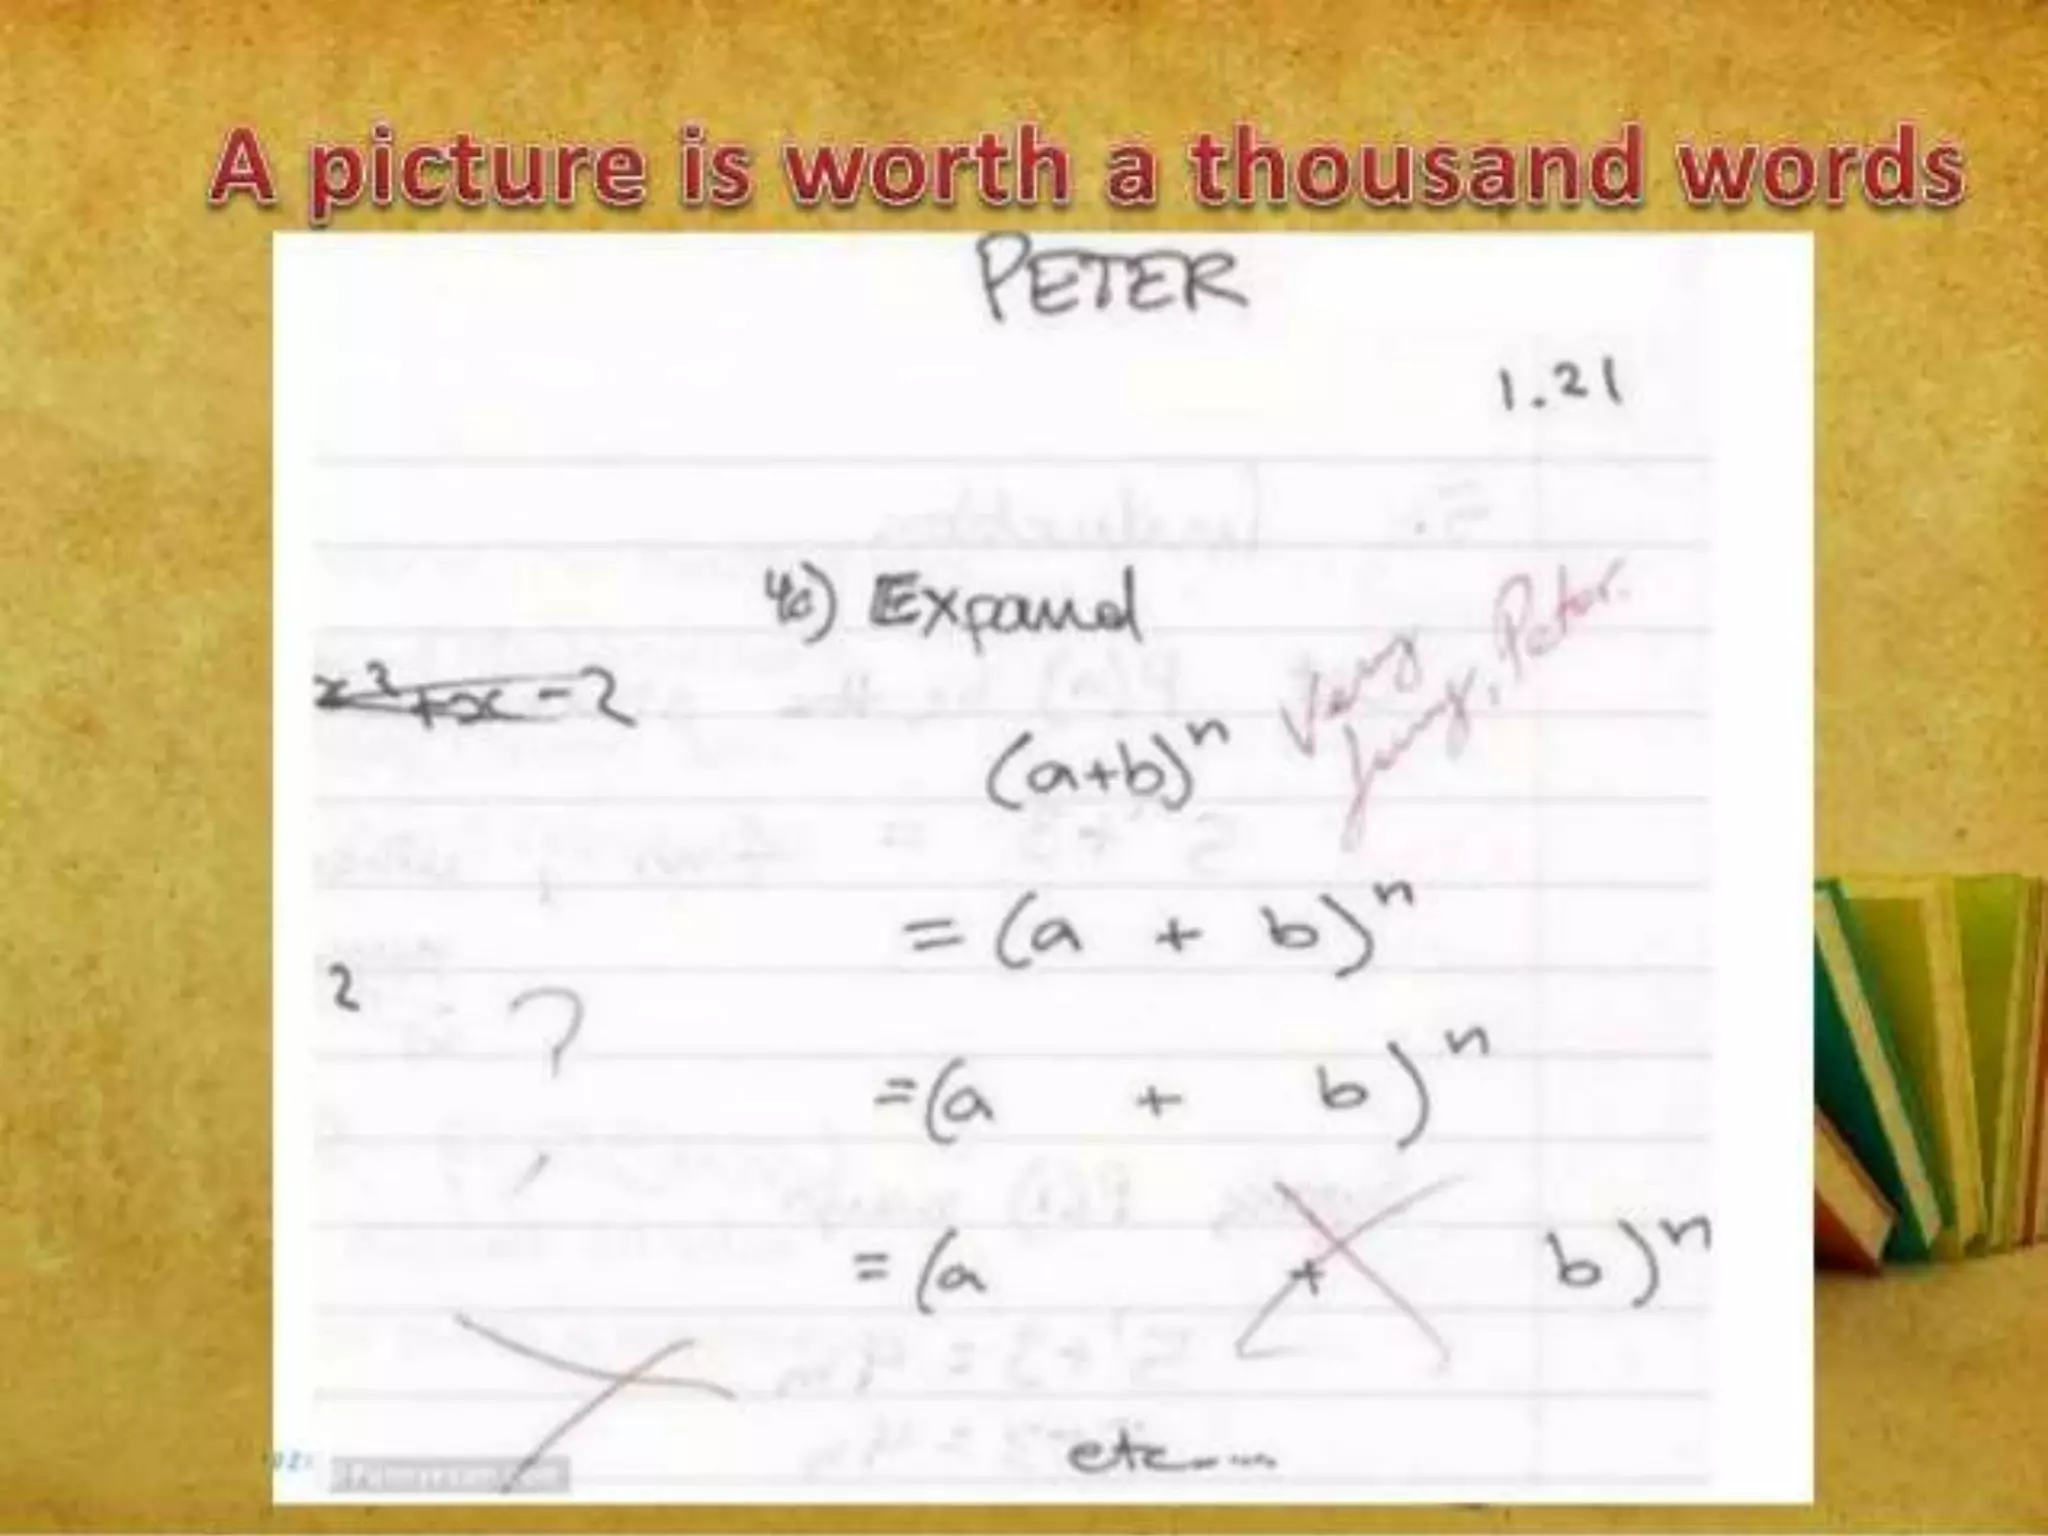 A picture is worth a thousand words
PETER
1.21
4c) Expand
Very funny, Peter.
x² + x - 2
(a+b)ⁿ
= (a + b)ⁿ
2 ?
= (a + b)ⁿ
= (a + b)ⁿ
etc....